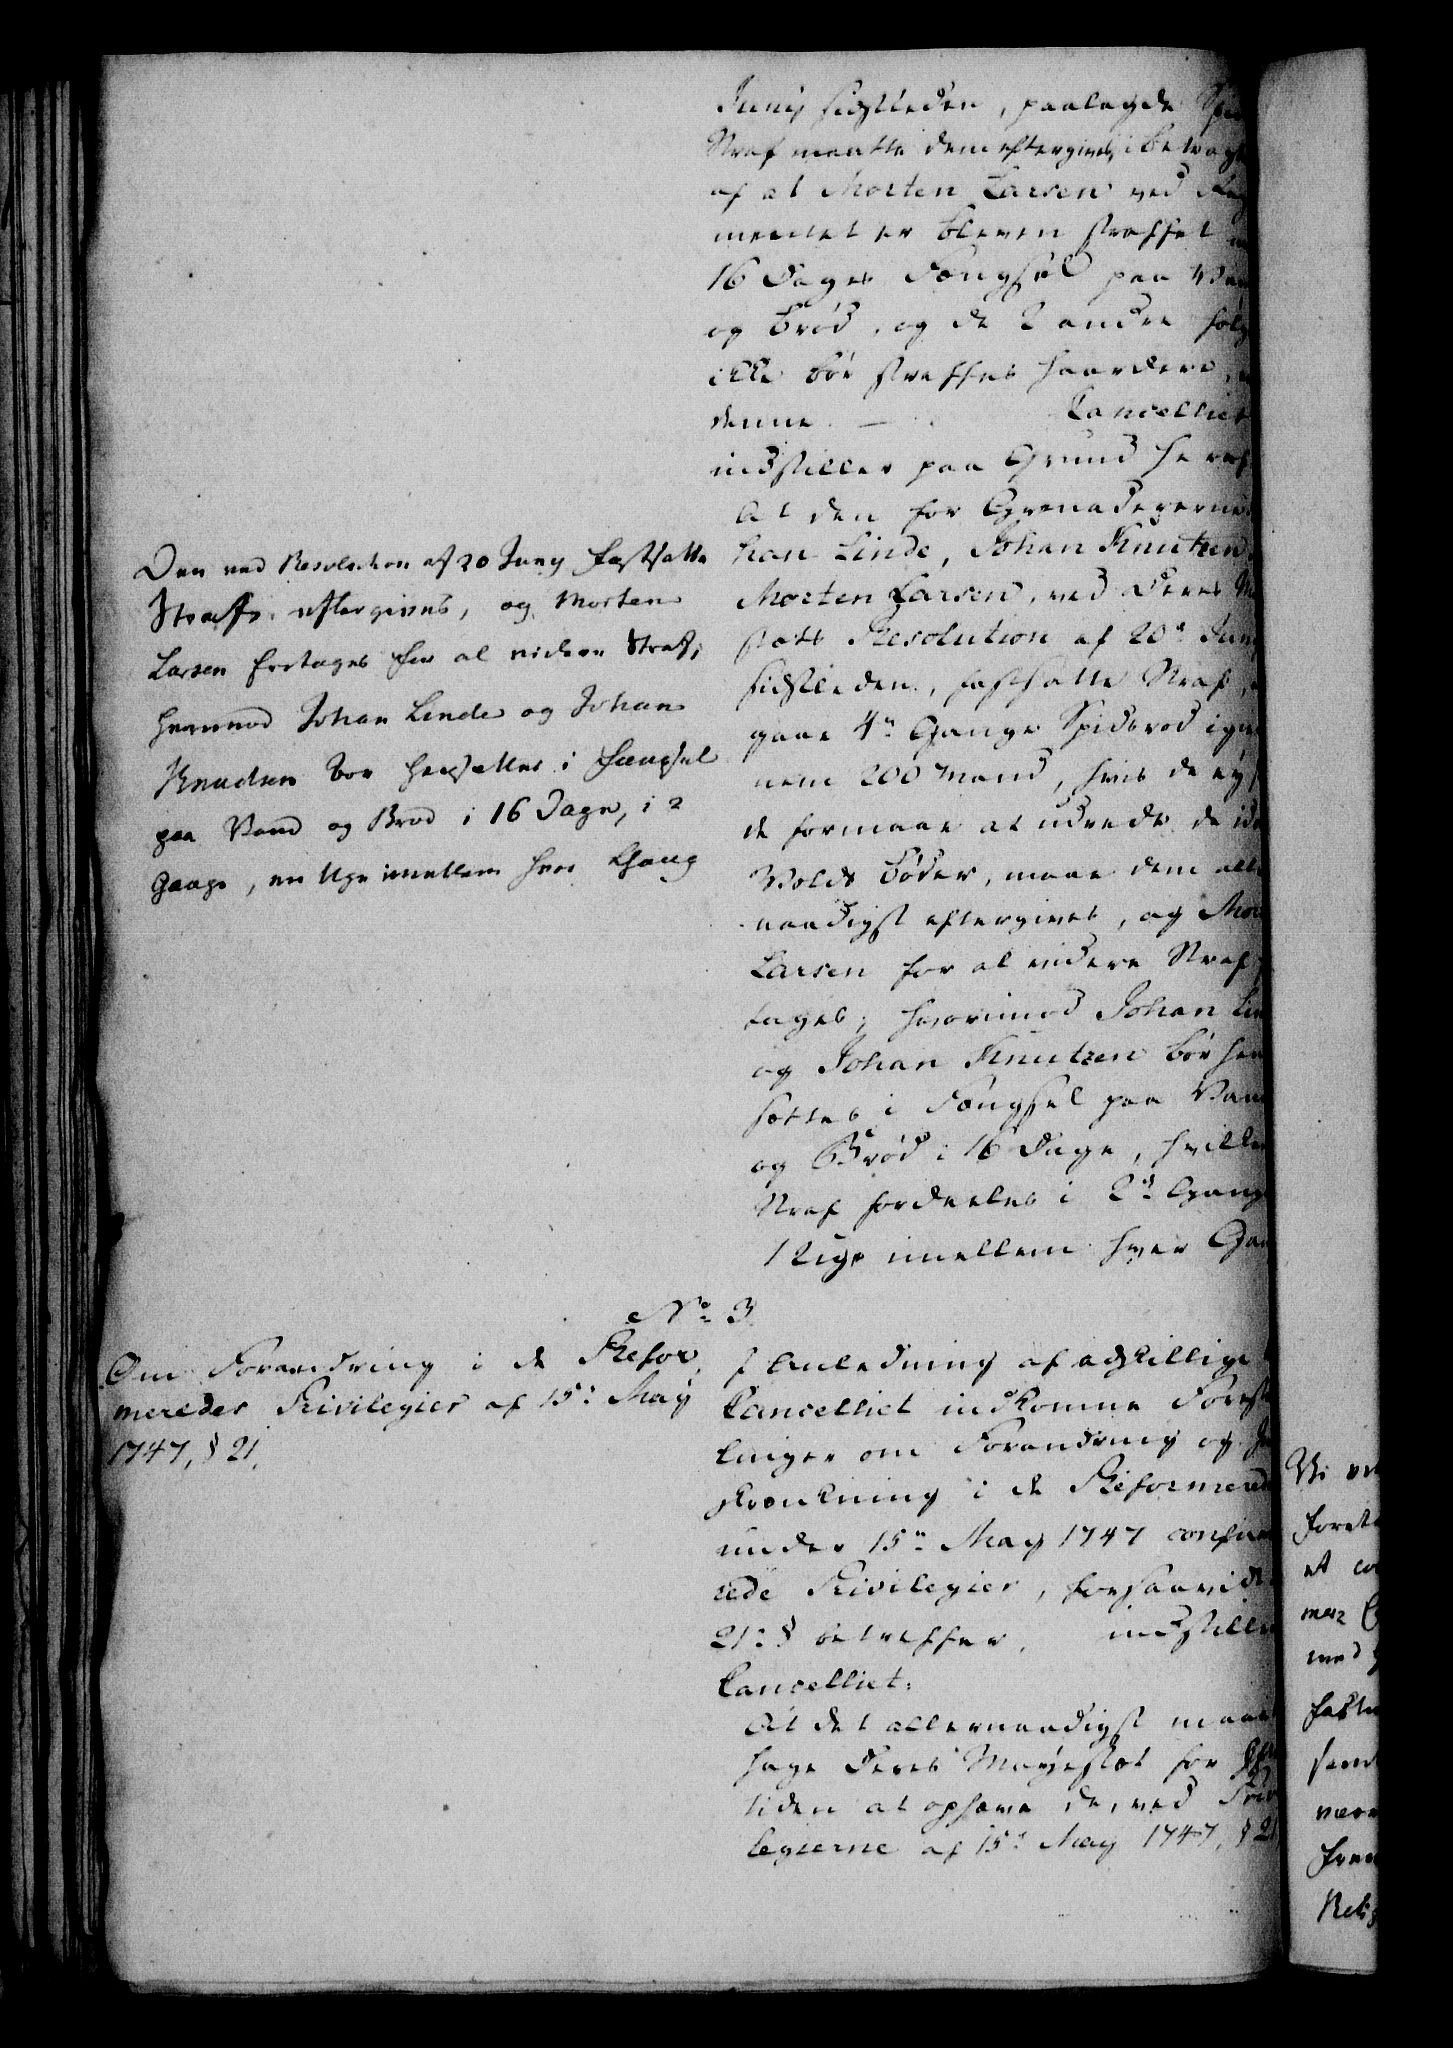 Junij sidstleden, paalagde
Straf maatte dem eftergives, i Betragt
af at Morten Larsen ved Reg
mentet er bleven straffet
16 Dages Fængsel paa Van
og Brød, og de 2 andre følg
ikke bør straffes haardere,
denne. — Cancelliet
indstiller paa Grund heraf
At den for Grenadererne
han Linde, Johan Knutzen
Morten Larsen, ved Deres Ma
stæts Resolution af 20de Juny
sidstleden, fastsatte Straf,
gaae 4re Gange Spidsrod igien
nem 200 Mand, hvis de ey
de formaae at udrede de id
Volds Bøder, maae dem aller
naadigst eftergives, og Mor
Larsen for al videre Straf
tages; hvorimod Johan Lin
og Johan Knutzen bør hen
sættes i Fængsel paa Van
og Brød i 16 Dage, hvilken
Straf fordeeles i 2de Gange
1 Uge imellem hver Gan
Den ved Resolution af 20 Juny fastsatte
Straf eftergives, og Morten
Larsen fritages for al videre Straf;
hvorimod Johan Linde og Johan
Knudsen bør hensættes i Fængsel
paa Vand og Brød i 16 Dage, i 2
Gange, en Uge imellem hver Gang
No 3.
Om Forandring i de Refor
meredes Privilegier af 15de May
1747, § 21.
I Anledning af adskillige
Cancelliet indkomne Forestil
linger om Forandring og In
skrænkning i de Reformered
under 15de May 1747 confirme
rede Privilegier, forsaavidt
21de § betræffer, indstiller
Cancelliet:
At det allernaadigst maae
hage Deres Majestæt for Efter
tiden at ophæve de, ved Privi
legierne af 15de May 1747, § 21
Vi vil
foret
et co
mer
med
fast
sem
være
frem
Reli